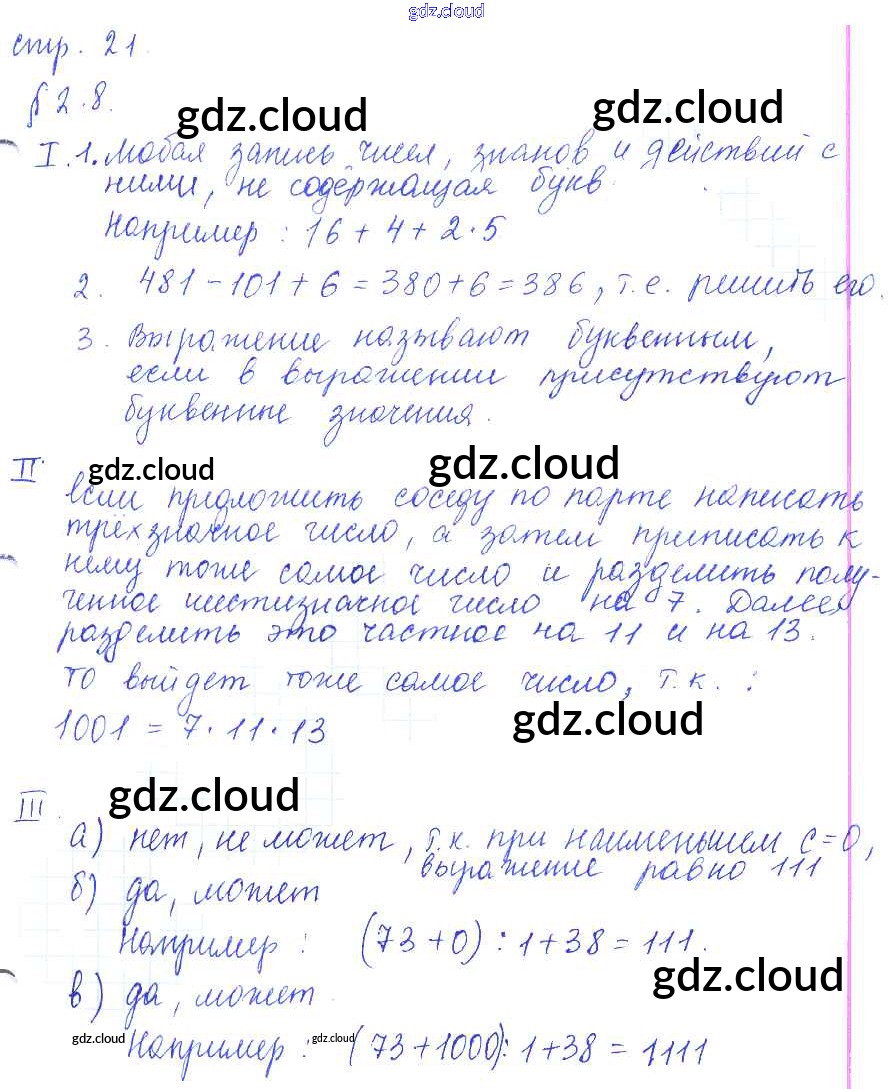 gdz.cloud
стр. 21.
§ 2.8.
gdz.cloud gdz.cloud
I. 1. Любая запись чисел, знаков и действий с
ними, не содержащая букв.
Например: 16 + 4 + 2 · 5
2. 481 - 101 + 6 = 380 + 6 = 386, т.е. решить его.
3. Выражение называют буквенным,
если в выражении присутствуют
буквенные значения.
II. gdz.cloud gdz.cloud
Если предложить соседу по парте написать
трёхзначное число, а затем приписать к
нему тоже самое число и разделить полу-
ченное шестизначное число на 7. Далее
разделить это частное на 11 и на 13.
То выйдет тоже самое число, т.к. :
1001 = 7 · 11 · 13 gdz.cloud
III. gdz.cloud
а) нет, не может, т.к. при наименьшем c = 0,
выражение равно 111
б) да, может
Например: (73 + 0) : 1 + 38 = 111.
gdz.cloud
в) да, может.
gdz.cloud Например: gdz.cloud (73 + 1000) : 1 + 38 = 1111